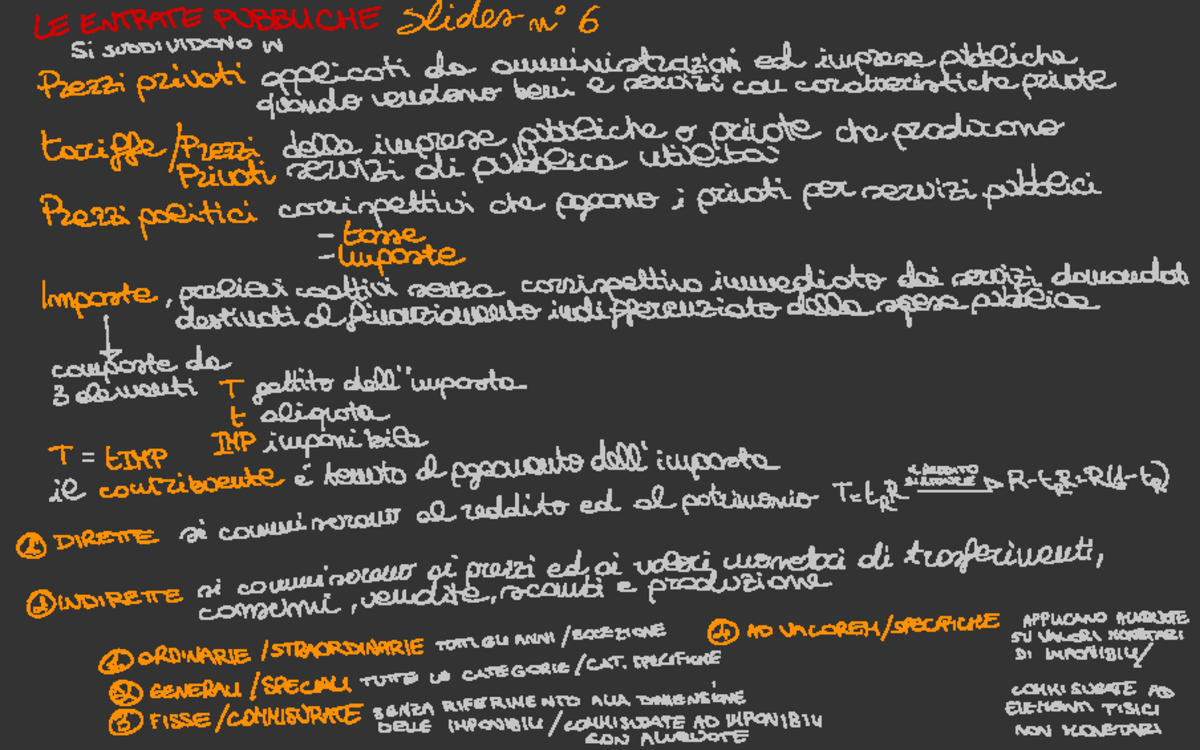 LE ENTRATE PUBBLICHE Slides n° 6
SI SUDDIVIDONO IN
Prezzi privati applicati da amministrazioni ed imprese pubbliche
quando vendono beni e servizi con caratteristiche private
tariffe/Prezzi delle imprese pubbliche o private che producono
Privati servizi di pubblica utilità
Prezzi politici corrispettivi che pagano i privati per servizi pubblici
- tasse
- imposte
Imposte, prelievi coattivi senza corrispettivo immediato dei servizi domandati
destinati al finanziamento indifferenziato della spesa pubblica
composte da
3 elementi T gettito dell'imposta
t aliquota
T = tIMP IMP imponibile
il contribuente è tenuto al pagamento dell'imposta
1 DIRETTE si commisurano al reddito ed al patrimonio T=t_R R IL REDDITO R-t_R R=R(1-t_R)
2 INDIRETTE si commisurano ai prezzi ed ai valori monetari di trasferimenti,
consumi, vendite, scambi e produzione
1 ORDINARIE/STRAORDINARIE TUTTI GLI ANNI/ECCEZIONE
2 GENERALI/SPECIALI TUTTE LE CATEGORIE/CAT. SPECIFICHE
3 FISSE/COMMISURATE SENZA RIFERIMENTO ALLA DIMENSIONE
DELLE IMPONIBILI/COMMISURATE AD IMPONIBILI
CON ALIQUOTE
4 AD VALOREM/SPECIFICHE APPLICANO ALIQUOTE
SU VALORI MONETARI
DI IMPONIBILI/
COMMISURATE AD
ELEMENTI FISICI
NON MONETARI